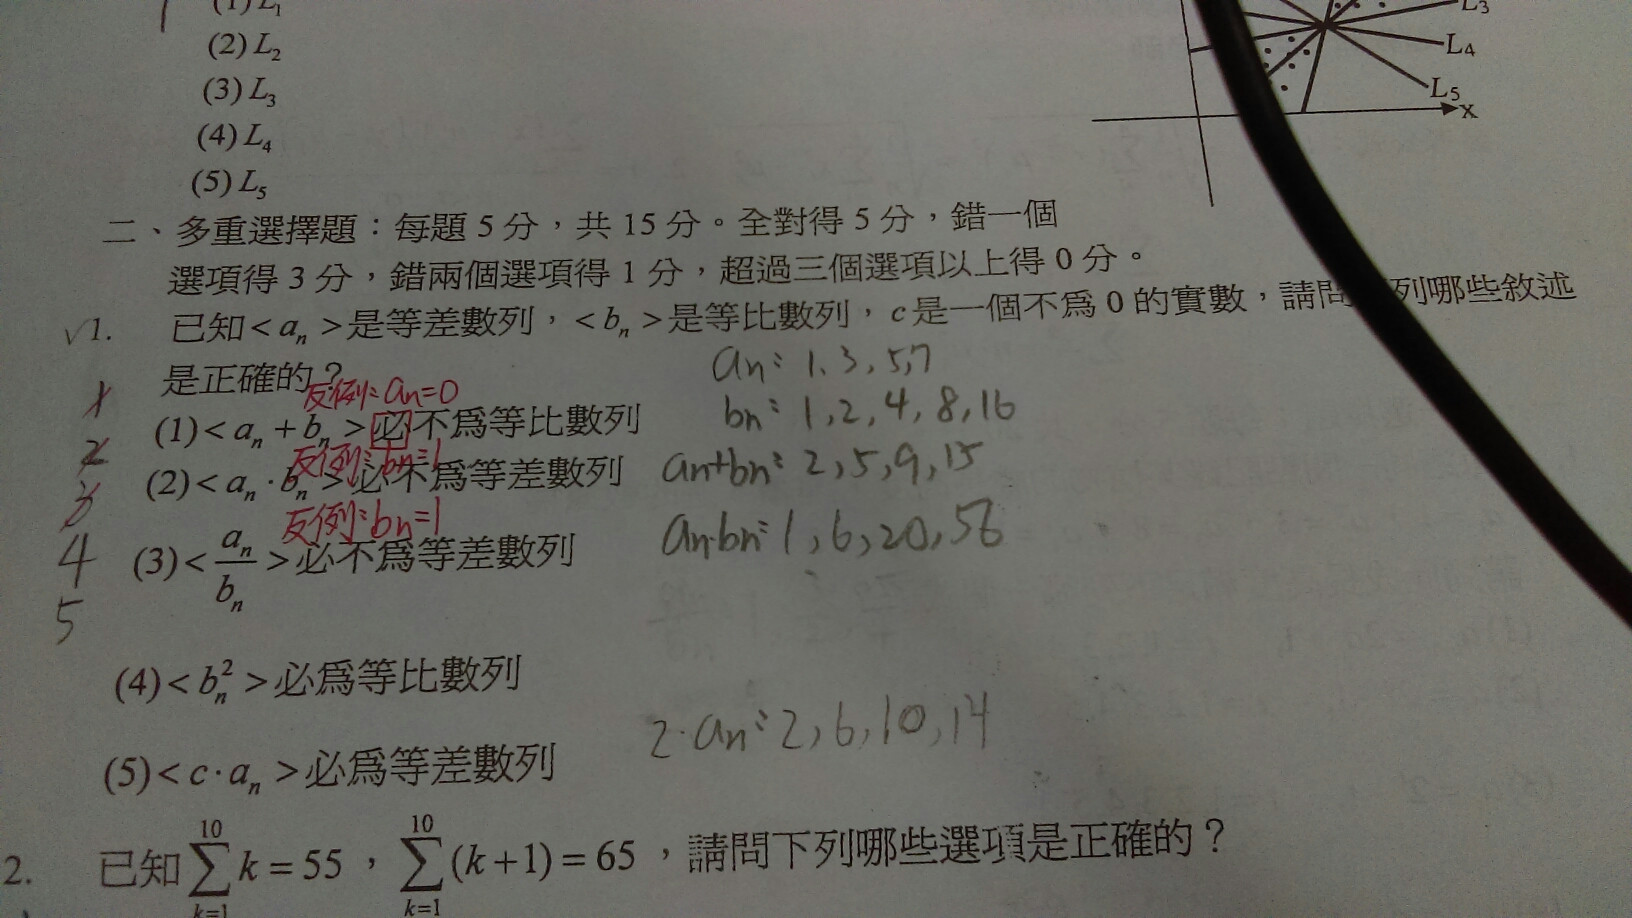 (1) L₁
(2) L₂
(3) L₃
(4) L₄
(5) L₅
L₃
L₄
L₅
x
二、多重選擇題：每題 5 分，共 15 分。全對得 5 分，錯一個
選項得 3 分，錯兩個選項得 1 分，超過三個選項以上得 0 分。
√1. 已知<aₙ>是等差數列，<bₙ>是等比數列，c是一個不爲 0 的實數，請問 列哪些敘述
是正確的？
an: 1, 3, 5, 7
反例: an=0
bn: 1, 2, 4, 8, 16
1
(1)<aₙ+bₙ>必不爲等比數列
反例: bn=1
an+bn: 2, 5, 9, 15
2
(2)<aₙ·bₙ>必不爲等差數列
反例: bn=1
an·bn: 1, 6, 20, 56
3
(3)<aₙ/bₙ>必不爲等差數列
4
5
(4)<bₙ²>必爲等比數列
2·an: 2, 6, 10, 14
(5)<c·aₙ>必爲等差數列
2. 已知∑_{k=1}^{10} k=55，∑_{k=1}^{10}(k+1)=65，請問下列哪些選項是正確的？